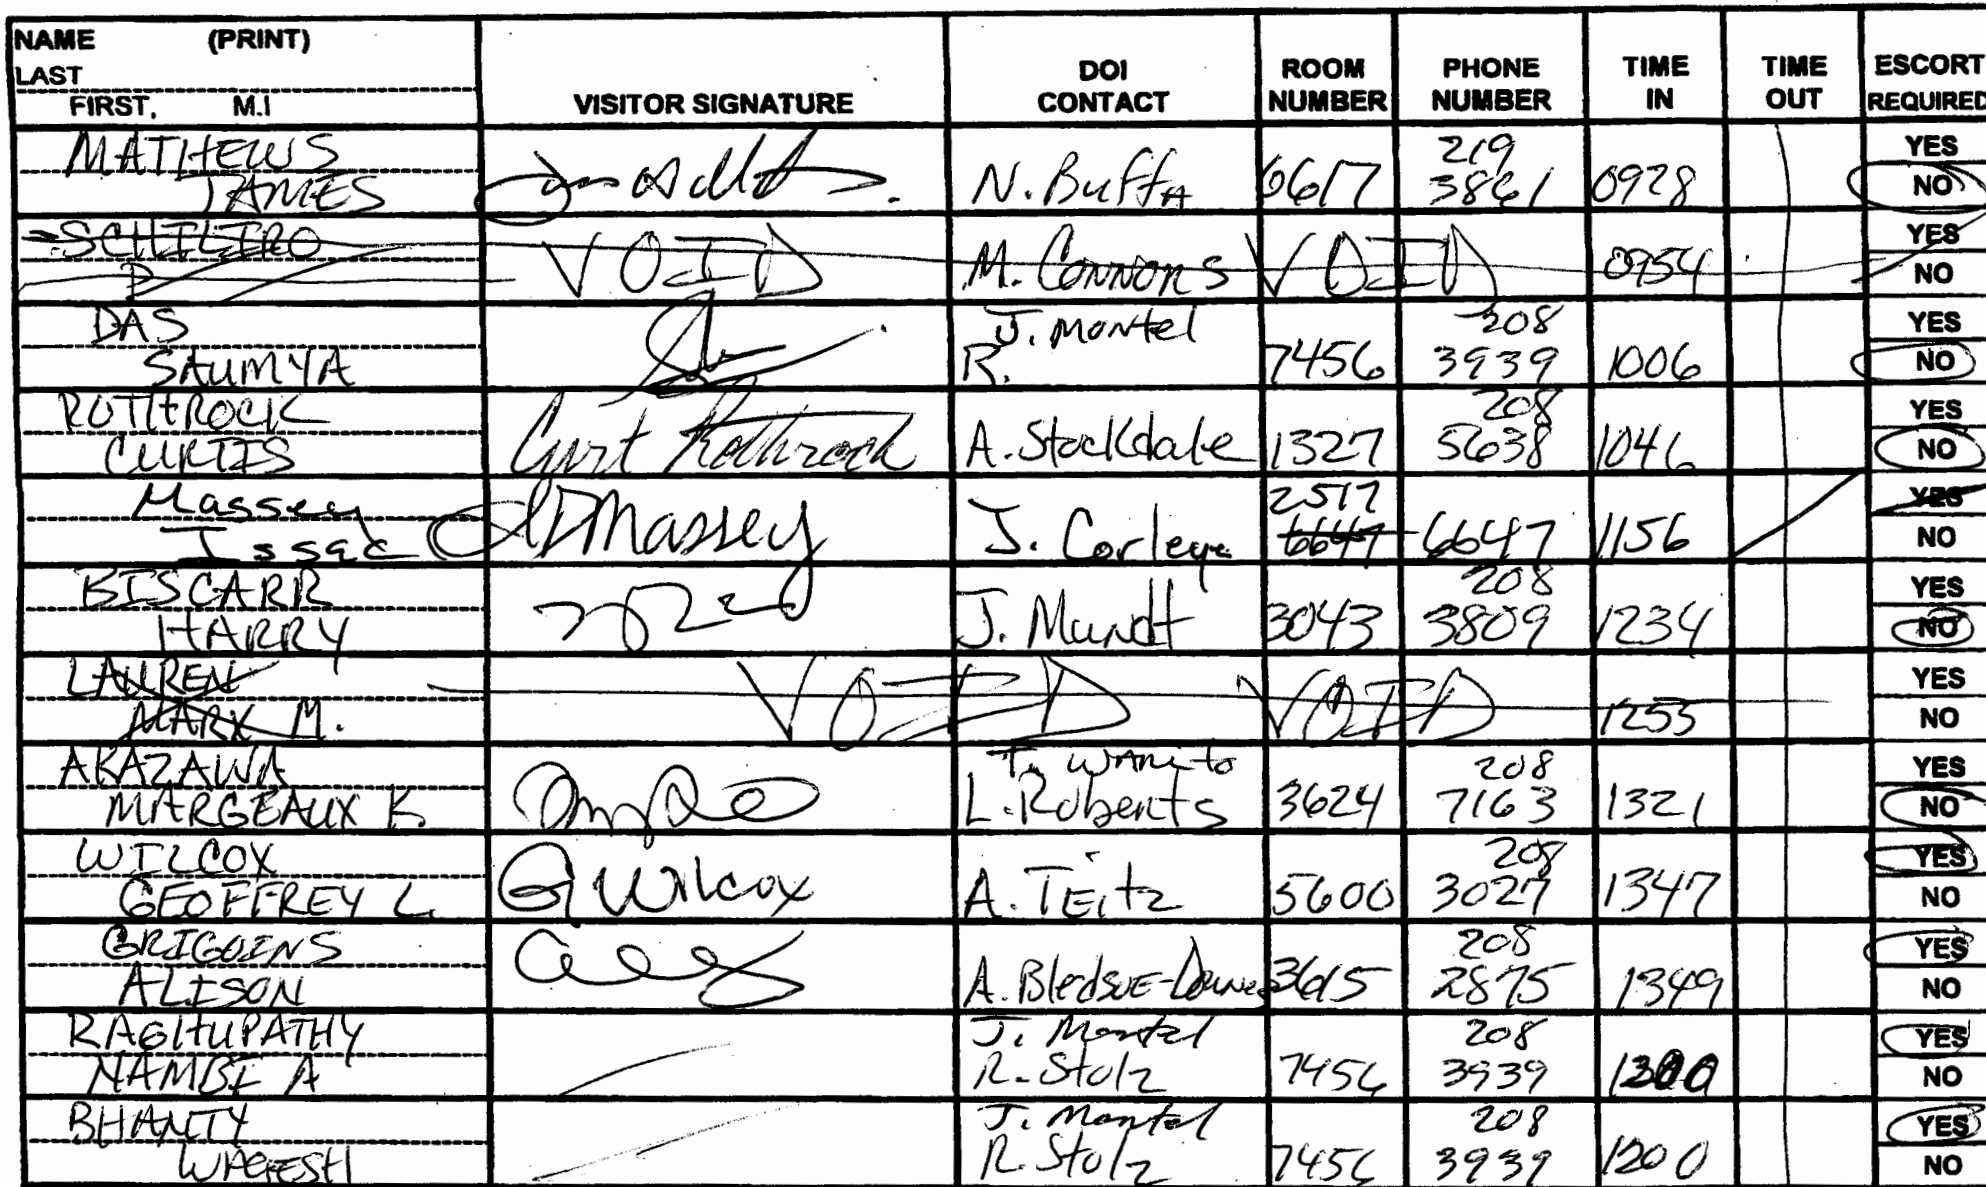 NAME (PRINT)
LAST
FIRST, M.I
VISITOR SIGNATURE
DOI CONTACT
ROOM NUMBER
PHONE NUMBER
TIME IN
TIME OUT
ESCORT REQUIRED
MATHEWS
JAMES
N. Buffa 6617 219 3861 0928 YES NO
SCHILIRO
VOID M. Connors VOID 0954 YES NO
DAS
SAUMYA
J. Montel
R. 7456 208 3939 1006 YES NO
ROTHROCK
CURTIS
Curt Rothrock A. Stockdale 1327 208 5638 1046 YES NO
Massey
Issac
Massey J. Corleya 2517 6647 6647 1156 YES NO
BISCARR
HARRY
J. Mundt 3043 208 3809 1234 YES NO
LAUREN
MARX M.
VOID VOID 1255 YES NO
AKAZAWA
MARGEAUX K.
L. Roberts 3624 208 7163 1321 YES NO
WILCOX
GEOFFREY L.
G Wilcox A. Teitz 5600 208 3027 1347 YES NO
GRIGOINS
ALISON
A. Bledsoe-Downes 3615 208 2875 1349 YES NO
RAGHUPATHY
NAMBI A
J. Montel
R. Stolz 7456 208 3939 1300 YES NO
BHANTY
WAGESH
J. Montel
R. Stolz 7456 208 3939 1200 YES NO